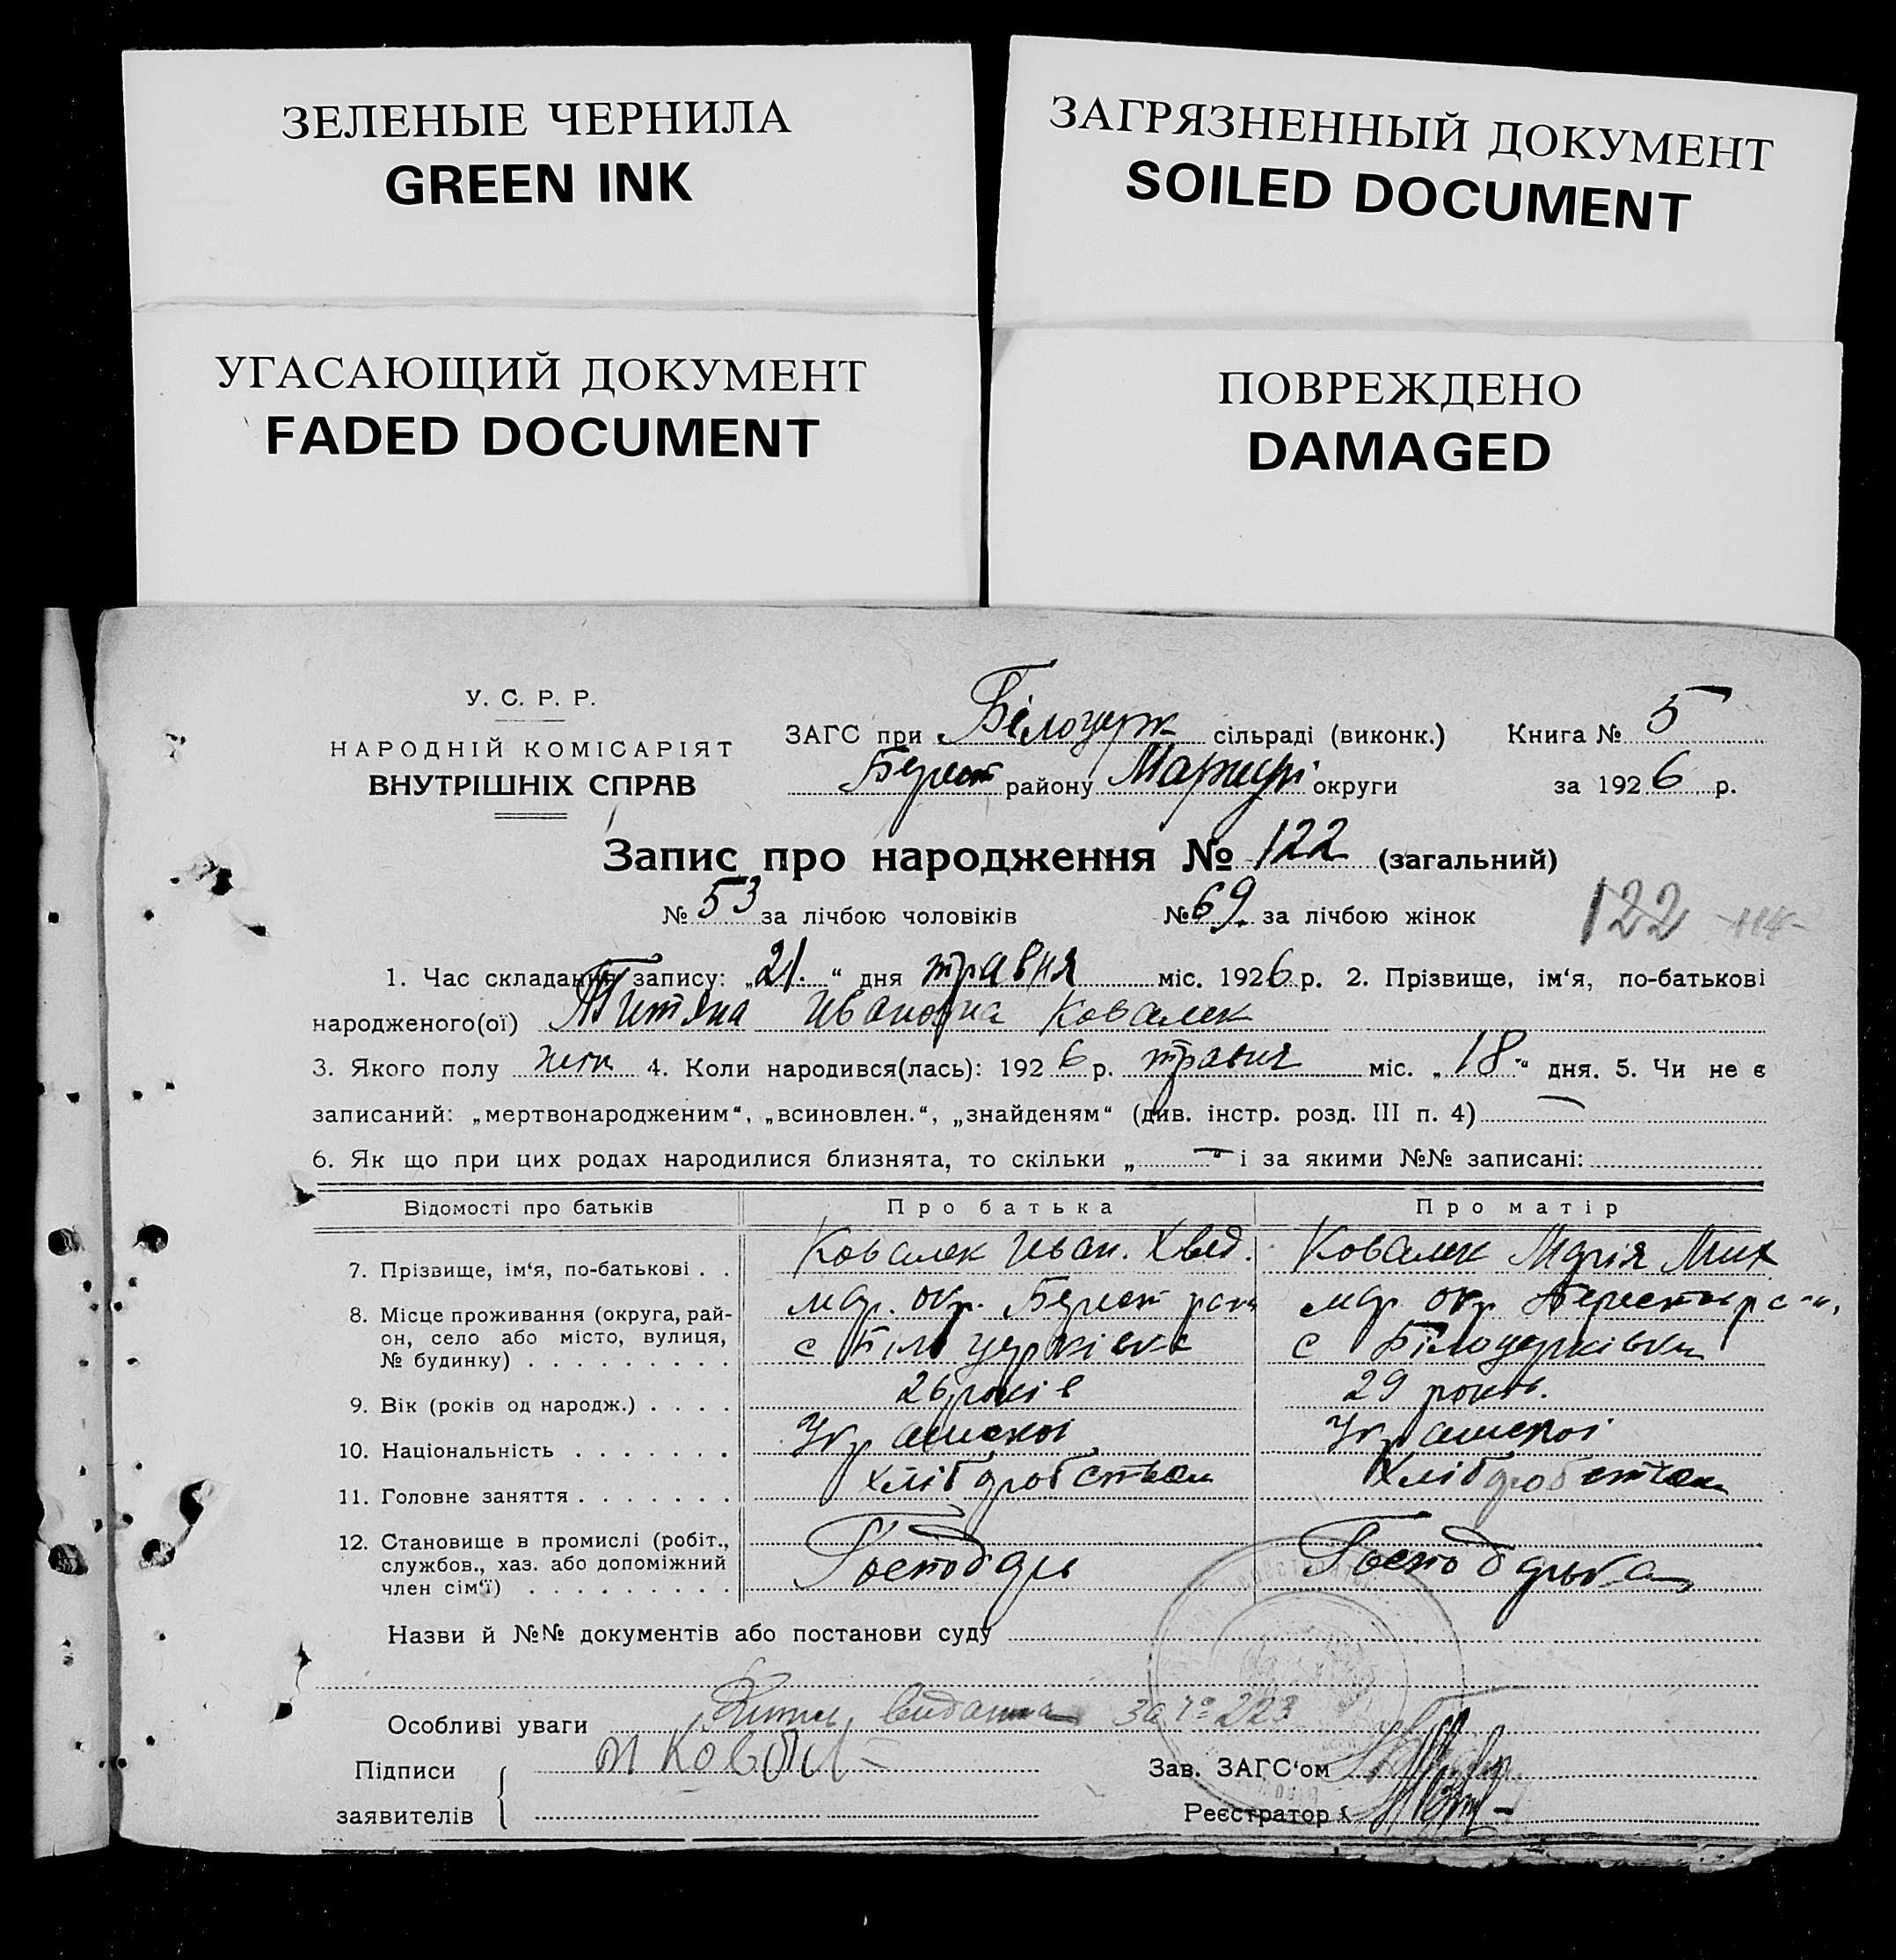 ЗЕЛЕНЫЕ ЧЕРНИЛА
GREEN INK
ЗАГРЯЗНЕННЫЙ ДОКУМЕНТ
SOILED DOCUMENT
УГАСАЮЩИЙ ДОКУМЕНТ
FADED DOCUMENT
ПОВРЕЖДЕНО
DAMAGED
У. С. Р. Р.
НАРОДНІЙ КОМІСАРІЯТ
ВНУТРІШНІХ СПРАВ
ЗАГС при Білоцерк сільраді (виконк.) Книга № 5
Берест району Маріюп округи за 1926 р.
Запис про народження № 122 (загальний)
№ 53 за лічбою чоловіків № 69 за лічбою жінок 122
1. Час складання запису: „21.“ дня травня міс. 1926 р. 2. Прізвище, ім'я, по-батькові
народженого(ої) Титяна Ивановна Ковалек
3. Якого полу жін 4. Коли народився(лась): 1926 р. травня міс. „18“ дня. 5. Чи не є
записаний: „мертвонародженим“, „всиновлен.“, „знайденям“ (див. інстр. розд. III п. 4) —
6. Як що при цих родах народилися близнята, то скільки „—“ і за якими №№ записані:
Відомості про батьків Про батька Про матір
7. Прізвище, ім'я, по-батькові . . Ковалек Иван. Хвед. Ковалек Марія Мих
8. Місце проживання (округа, рай- Мар. окр. Берест рай Мар окр Берестов рай,
он, село або місто, вулиця, с Білоцерківка с Білоцерківка
№ будинку)
9. Вік (років од народж.) 26 років 29 років.
10. Національність Українскої Українскої
11. Головне заняття хліборобством хліборобством
12. Становище в промислі (робіт., Господарь Господарька
службов., хаз. або допоміжний
член сім'ї)
Назви й №№ документів або постанови суду
Особливі уваги видана за № 223
Підписи И Ковал Зав. ЗАГС'ом
заявителів Реєстратор